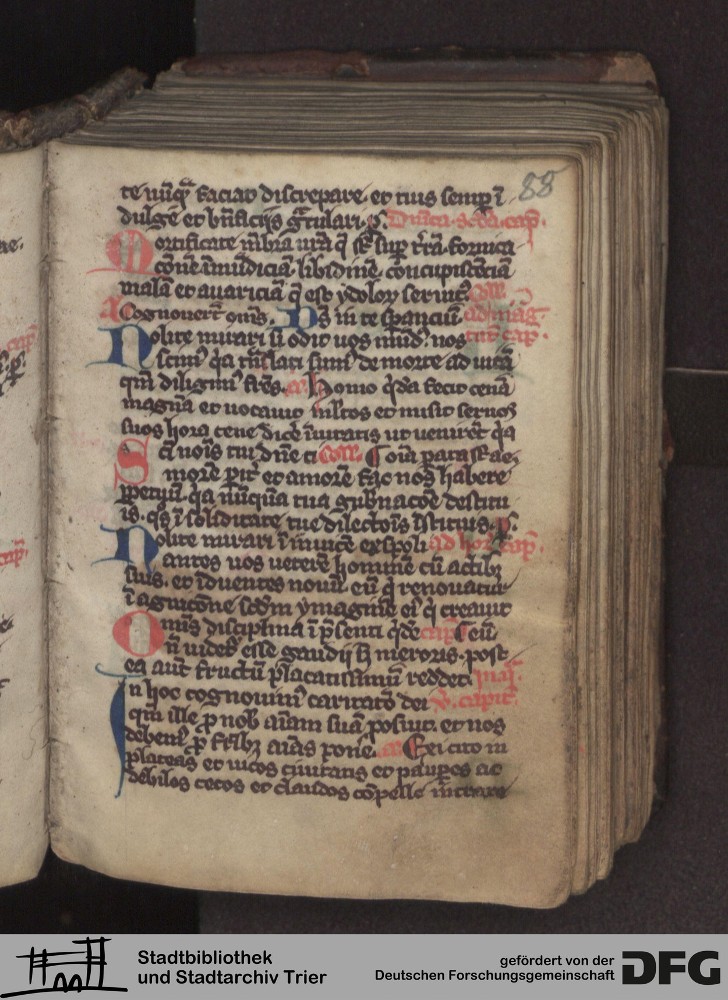 88
te nūqᵃ faciat discrepare. et tuis semp ī
dulge et bn̄ficijs gᵃtulari. p. Dnīca scda. cap.
Mortificate mēbra ur̄a q̄ sūt sup t̄rā. fornica
cōne īmūdiciā libidinē. cōcupiscēciā
malā et auariciā q̄ est ydoloꝝ seruit⁹. coll.
a Cognouerūt om̄s. Ds̄ in te sperancium ad mag.
Nolite mirari si odit uos mūd⁹. nos
scim⁹ qa trāslati sum⁹ de morte ad uitā
qm̄ diligim⁹ fr̄es. a. Homo qdā fecit cenā
magnā et uocauit m̄ltos et misit seruos
suos hora cene dicē īuitatis ut uenirēt qa
Sci nois tui dn̄e ti coll. oīa parata sūt ae
morē pit̓ et amorē fac nos habere
ppetuū. qa nūquā tua gub̓nacōe destitu
is. qs ī soliditate tue dilectōis īstituis. p.
Nolite mirari īuicē exspoli ad hor. cap.
antes uos ueterē hominē cū actib⁹
suis. et īduentes nouū eū q̄ renouatur
ī agnitōne scdm ymaginē ei⁹ q̄ creauit
Omīs disciplina ī p̄senti qde cap. eū
n̄ uidet̓ esse gaudij ꝫ meroris. post
ea aut̄ fructū placatissimū reddet.
In hoc cognouim⁹ caritatē dei v. capit.
qm̄ ille p nob̓ aīam suā posuit. et nos
debem⁹ p fr̄ib⁹ aīas pone. a. Exi cito in
plateas et uicos ciuitatis et paupes ac
debiles cecos et claudos cōpelle intrare
Stadtbibliothek
und Stadtarchiv Trier
gefördert von der
Deutschen Forschungsgemeinschaft
DFG